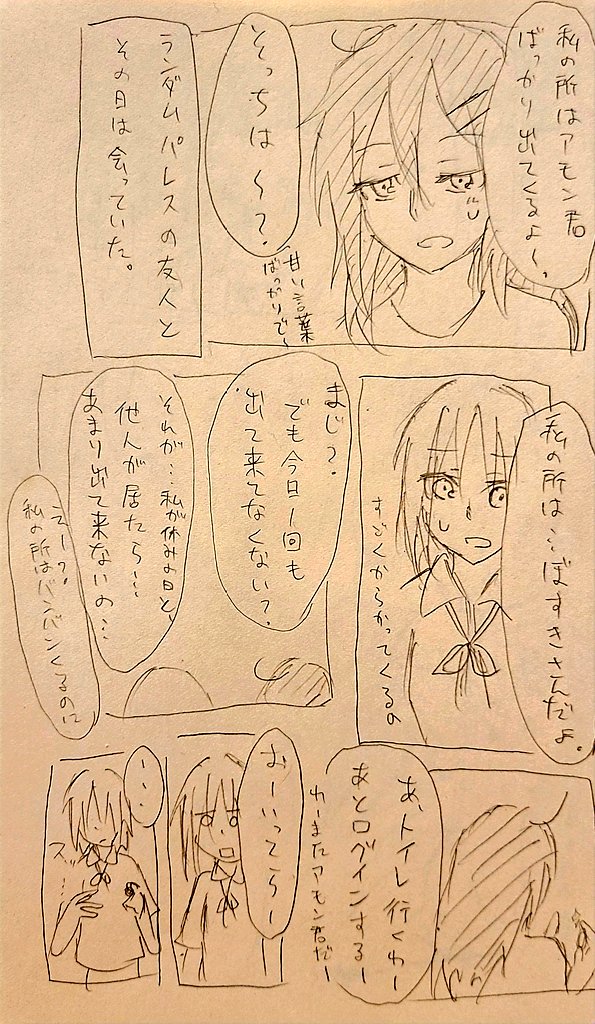 私の所はアモン君
ばっかり出てくるよ〜。
そっちは〜?
甘い言葉
ばっかりで〜
ランダムパレスの友人と
その日は会っていた。
私の所は…ぼすきさんだよ。
すごくからかってくるの
まじ?
でも今日1回も
出て来てなくない?
それが…私が休みの日と、
他人が居たら…
あまり出て来ないの…
えー?
私の所はバンバンくるのに
あ、トイレ行くわー
あとログインするー
わーまたアモン君だー
おーいってらー
…
スッ…